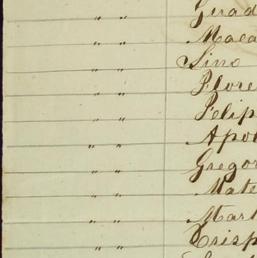 " " Guad
" " Maca
" " Sino
" " Flore
" " Felip
" " Apol
" " Gregor
" " Mate
" " Mart
" " Crisp